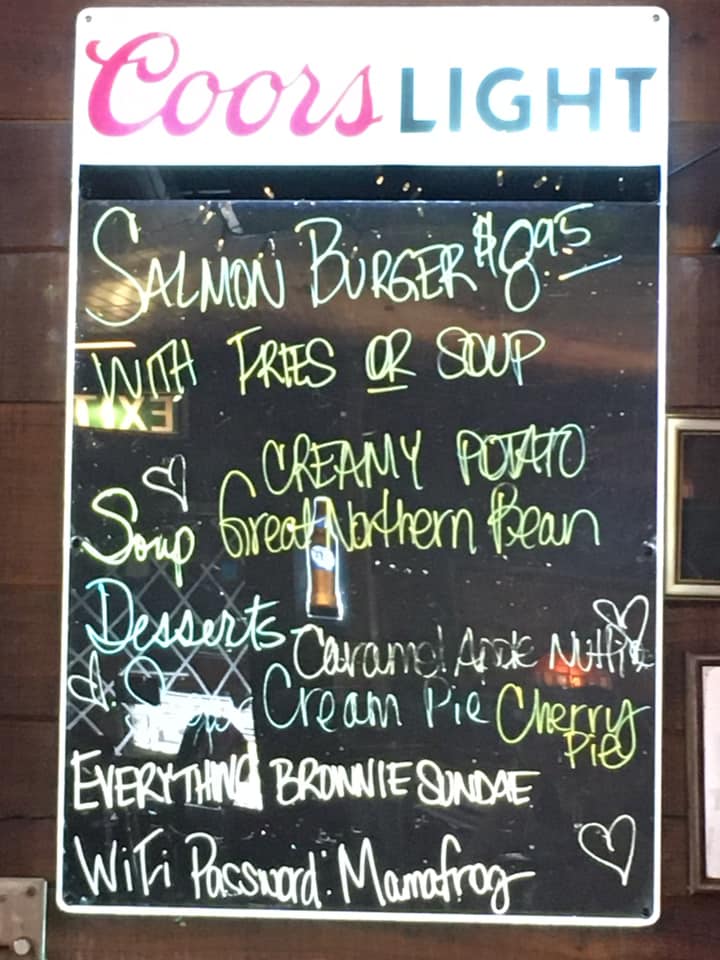 Coors LIGHT
SALMON BURGER $8.95
WITH FRIES OR SOUP
CREAMY POTATO
Soup Great Northern Bean
Desserts Caramel Apple Nut Pie
Cream Pie Cherry
Pie
EVERYTHING BROWNIE SUNDAE
WiFi Password: Mamafrog
EXIT